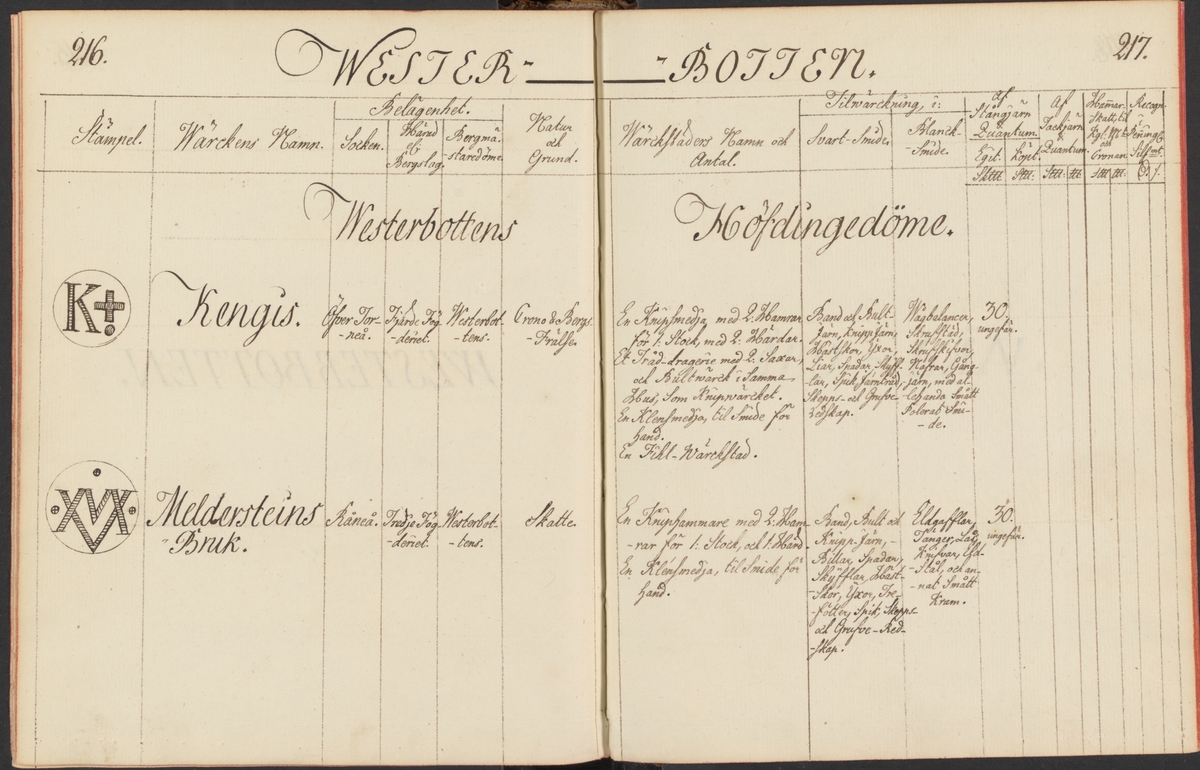 216.
WESTER-
-BOTTEN.
217.
Stämpel.
Wärckens Namn.
Belägenhet.
Socken.
Härad
och
Bergslag.
Bergmä-
staredöme.
Natur
och
Grund.
Wärckstäders Namn och
Antal.
Tilwärckning, i:
Svart-Smide.
Blanck-
Smide.
af
Stångjärn
Quantum
Egit.
Köpt.
Af
Tackjärn
Quantum.
Hamar-
Skatt, til
Kgl. Mt.
och
Cronan.
Recogn.
Penning
Westerbottens
Höfdingedöme.
K
Kengis.
Öfver Tor-
-neå.
Fjärde Fög-
-deriet.
Westerbot-
-tens.
Crono &o Bergs-
-Frälse.
En Knipsmedja, med 2: Hamrar
för 1: Stock, med 2: Härdar.
Et Tråd-dragerie med 2: Saxar,
och Bultwärck i Samma
Hus, som Knipwärcket.
En Klensmedja, til Smide för
hand.
En Fihl-Wärckstad.
Band och Bult
Järn, Knippjärn,
Hästskor, Yxor,
Liar, Spadar, Skyff-
lar, Spik, Järntråd,
Skepps- och Grufve-
Redskap.
Wigbalancer,
Skrufstäd,
Skrufskifvor,
Nafrar, Gång-
järn, med al-
lehanda Smått
Polerat Smi-
-de.
30.
ungefär.
Meldersteins
-Bruk.
Råneå.
Tredje Fög-
-deriet.
Westerbot-
-tens.
Skatte.
En Kniphammare med 2: Ham-
-rar för 1: Stock, och 1: Härd.
En Klensmedja, til Smide för
hand.
Band, Bult och
Knipp-Järn,
Billar, Spadar,
Skyfflar, Häst-
Skor, Yxor, Tre-
-fötter, Spik, Skepps
och Grufve-Red-
-skap.
Eldgafflar,
Tänger, Låd,
Knifvar, Eld-
-Stål, och an-
-nat Smått
Kram.
30.
ungefär.